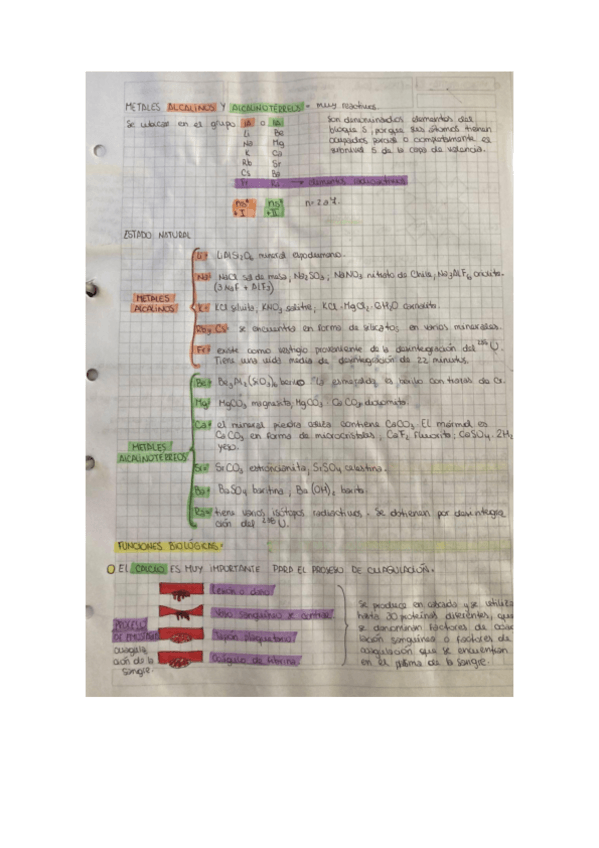 METALES ALCALINOS Y ALCALINOTÉRREOS → muy reactivos.
Se ubican en el grupo IA o IIA
Li Be
Na Mg
K Ca
Rb Sr
Cs Ba
Fr Ra → elementos radioactivos
ns¹ ns² n=2 a 7.
+I +II
Son denominados elementos del
bloque S, porque sus átomos tienen
ocupados parcial o completamente el
subnivel S de la capa de valencia.
ESTADO NATURAL
METALES
ALCALINOS
Li → LiAlSi₂O₆ mineral espodumeno.
Na → NaCl sal de mesa, Na₂SO₃; NaNO₃ nitrato de Chile, Na₃AlF₆ criolita.
(3NaF + AlF₃)
K → KCl silvita, KNO₃ salitre, KCl·MgCl₂·6H₂O carnalita.
Rb y Cs → se encuentra en forma de silicatos; en varios minerales.
Fr → existe como vestigio proveniente de la desintegración del U.
Tiene una vida media de desintegración de 22 minutos.
METALES
ALCALINOTÉRREOS
Be → Be₃Al₂(SiO₃)₆ berilo. La esmeralda es berilo con trazas de Cr.
Mg → MgCO₃ magnesita, MgCO₃·CaCO₃ dolomita.
Ca → el mineral piedra caliza contiene CaCO₃. El mármol es
CaCO₃ en forma de microcristales, CaF₂ fluorita; CaSO₄·2H₂
yeso.
Sr → SrCO₃ estroncianita, SrSO₄ celestina.
Ba → BaSO₄ baritina, Ba(OH)₂ barita.
Ra → tiene varios isótopos radiactivos. Se obtienen por desintegra
ción del ²³⁸U.
FUNCIONES BIOLÓGICAS →
EL CALCIO ES MUY IMPORTANTE PARA EL PROCESO DE COAGULACIÓN.
PROCESO
coagula
ción de la
sangre.
Lesión o daño
Vaso sanguíneo se contrae
Tapón plaquetario
Coágulo de fibrina
Se produce en cascada y se utiliza
hasta 30 proteínas diferentes, que
se denominan factores de coag
ulación sanguínea o factores de
coagulación que se encuentran
en el plasma de la sangre.